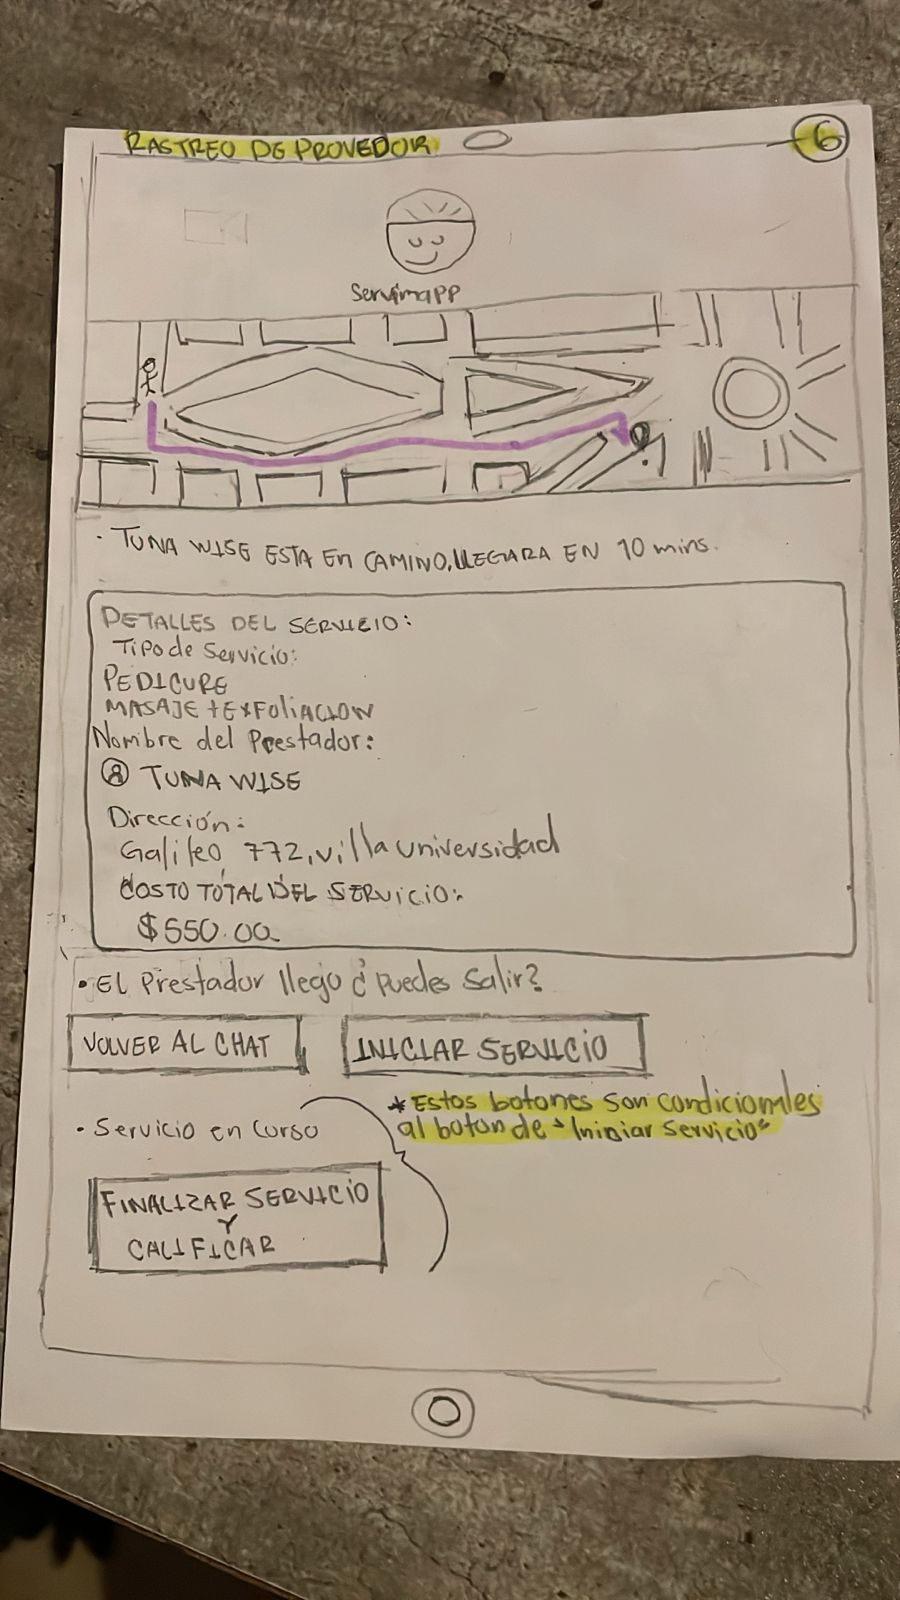 RASTREO DE PROVEDOR
6
Servimapp
• TUNA WISE ESTA En CAMINO, LLEGARA EN 10 mins.
DETALLES DEL SERVICIO:
Tipo de Servicio:
PEDICURE
MASAJE + EXFOLIACION
Nombre del Prestador:
TUNA WISE
Dirección:
Galileo 772, villa universidad
COSTO TOTAL DEL SERVICIO:
$550.00
• EL Prestador llego ¿Puedes Salir?
VOLVER AL CHAT
INICIAR SERVICIO
* Estos botones son condicionales
al boton de "Iniciar Servicio"
• Servicio en Curso
FINALIZAR SERVICIO
Y
CALIFICAR